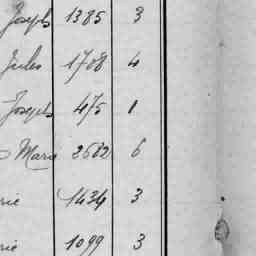 Joseph 1385 3
Jules 1708 4
Joseph 475 1
Marie 2582 6
rie 1434 3
rie 1099 3